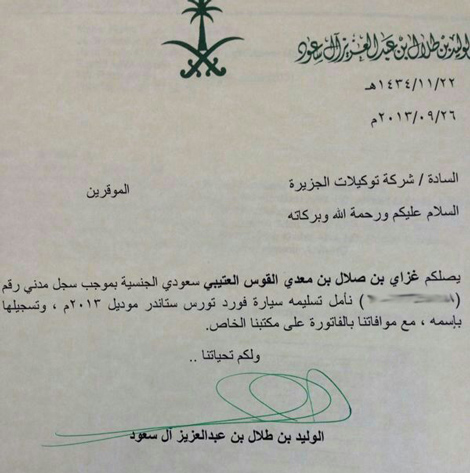 الوليد بن طلال بن عبدالعزيز آل سعود
١٤٣٤/١١/٢٢هـ
٢٠١٣/٠٩/٢٦م
السادة / شركة توكيلات الجزيرة الموقرين
السلام عليكم ورحمة الله وبركاته
يصلكم غزاي بن صلال بن معدي القوس العتيبي سعودي الجنسية بموجب سجل مدني رقم
( ) نأمل تسليمه سيارة فورد تورس ستاندر موديل ٢٠١٣م ، وتسجيلها
بإسمه ، مع موافاتنا بالفاتورة على مكتبنا الخاص.
ولكم تحياتنا ..
الوليد بن طلال بن عبدالعزيز آل سعود